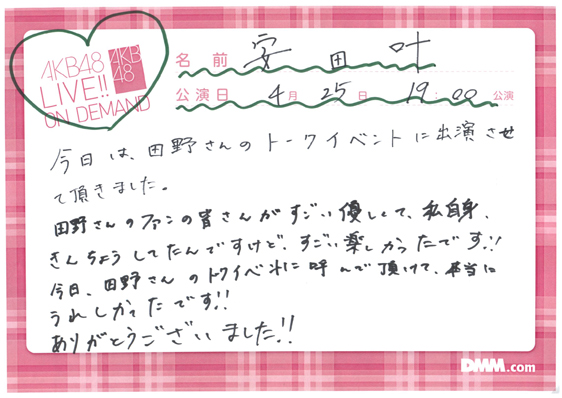 AKB48
LIVE!!
ON DEMAND
AKB
48
名前 安田叶
公演日 4月25日 19:00 公演
今日は、田野さんのトークイベントに出演させ
て頂きました。
田野さんのファンの皆さんがすごい優しくて、私自身、
きんちょうしてたんですけど、すごい楽しかったです!!
今日、田野さんのトークイベントに呼んで頂けて、本当に
うれしかったです!!
ありがとうございました!!
DMM.com